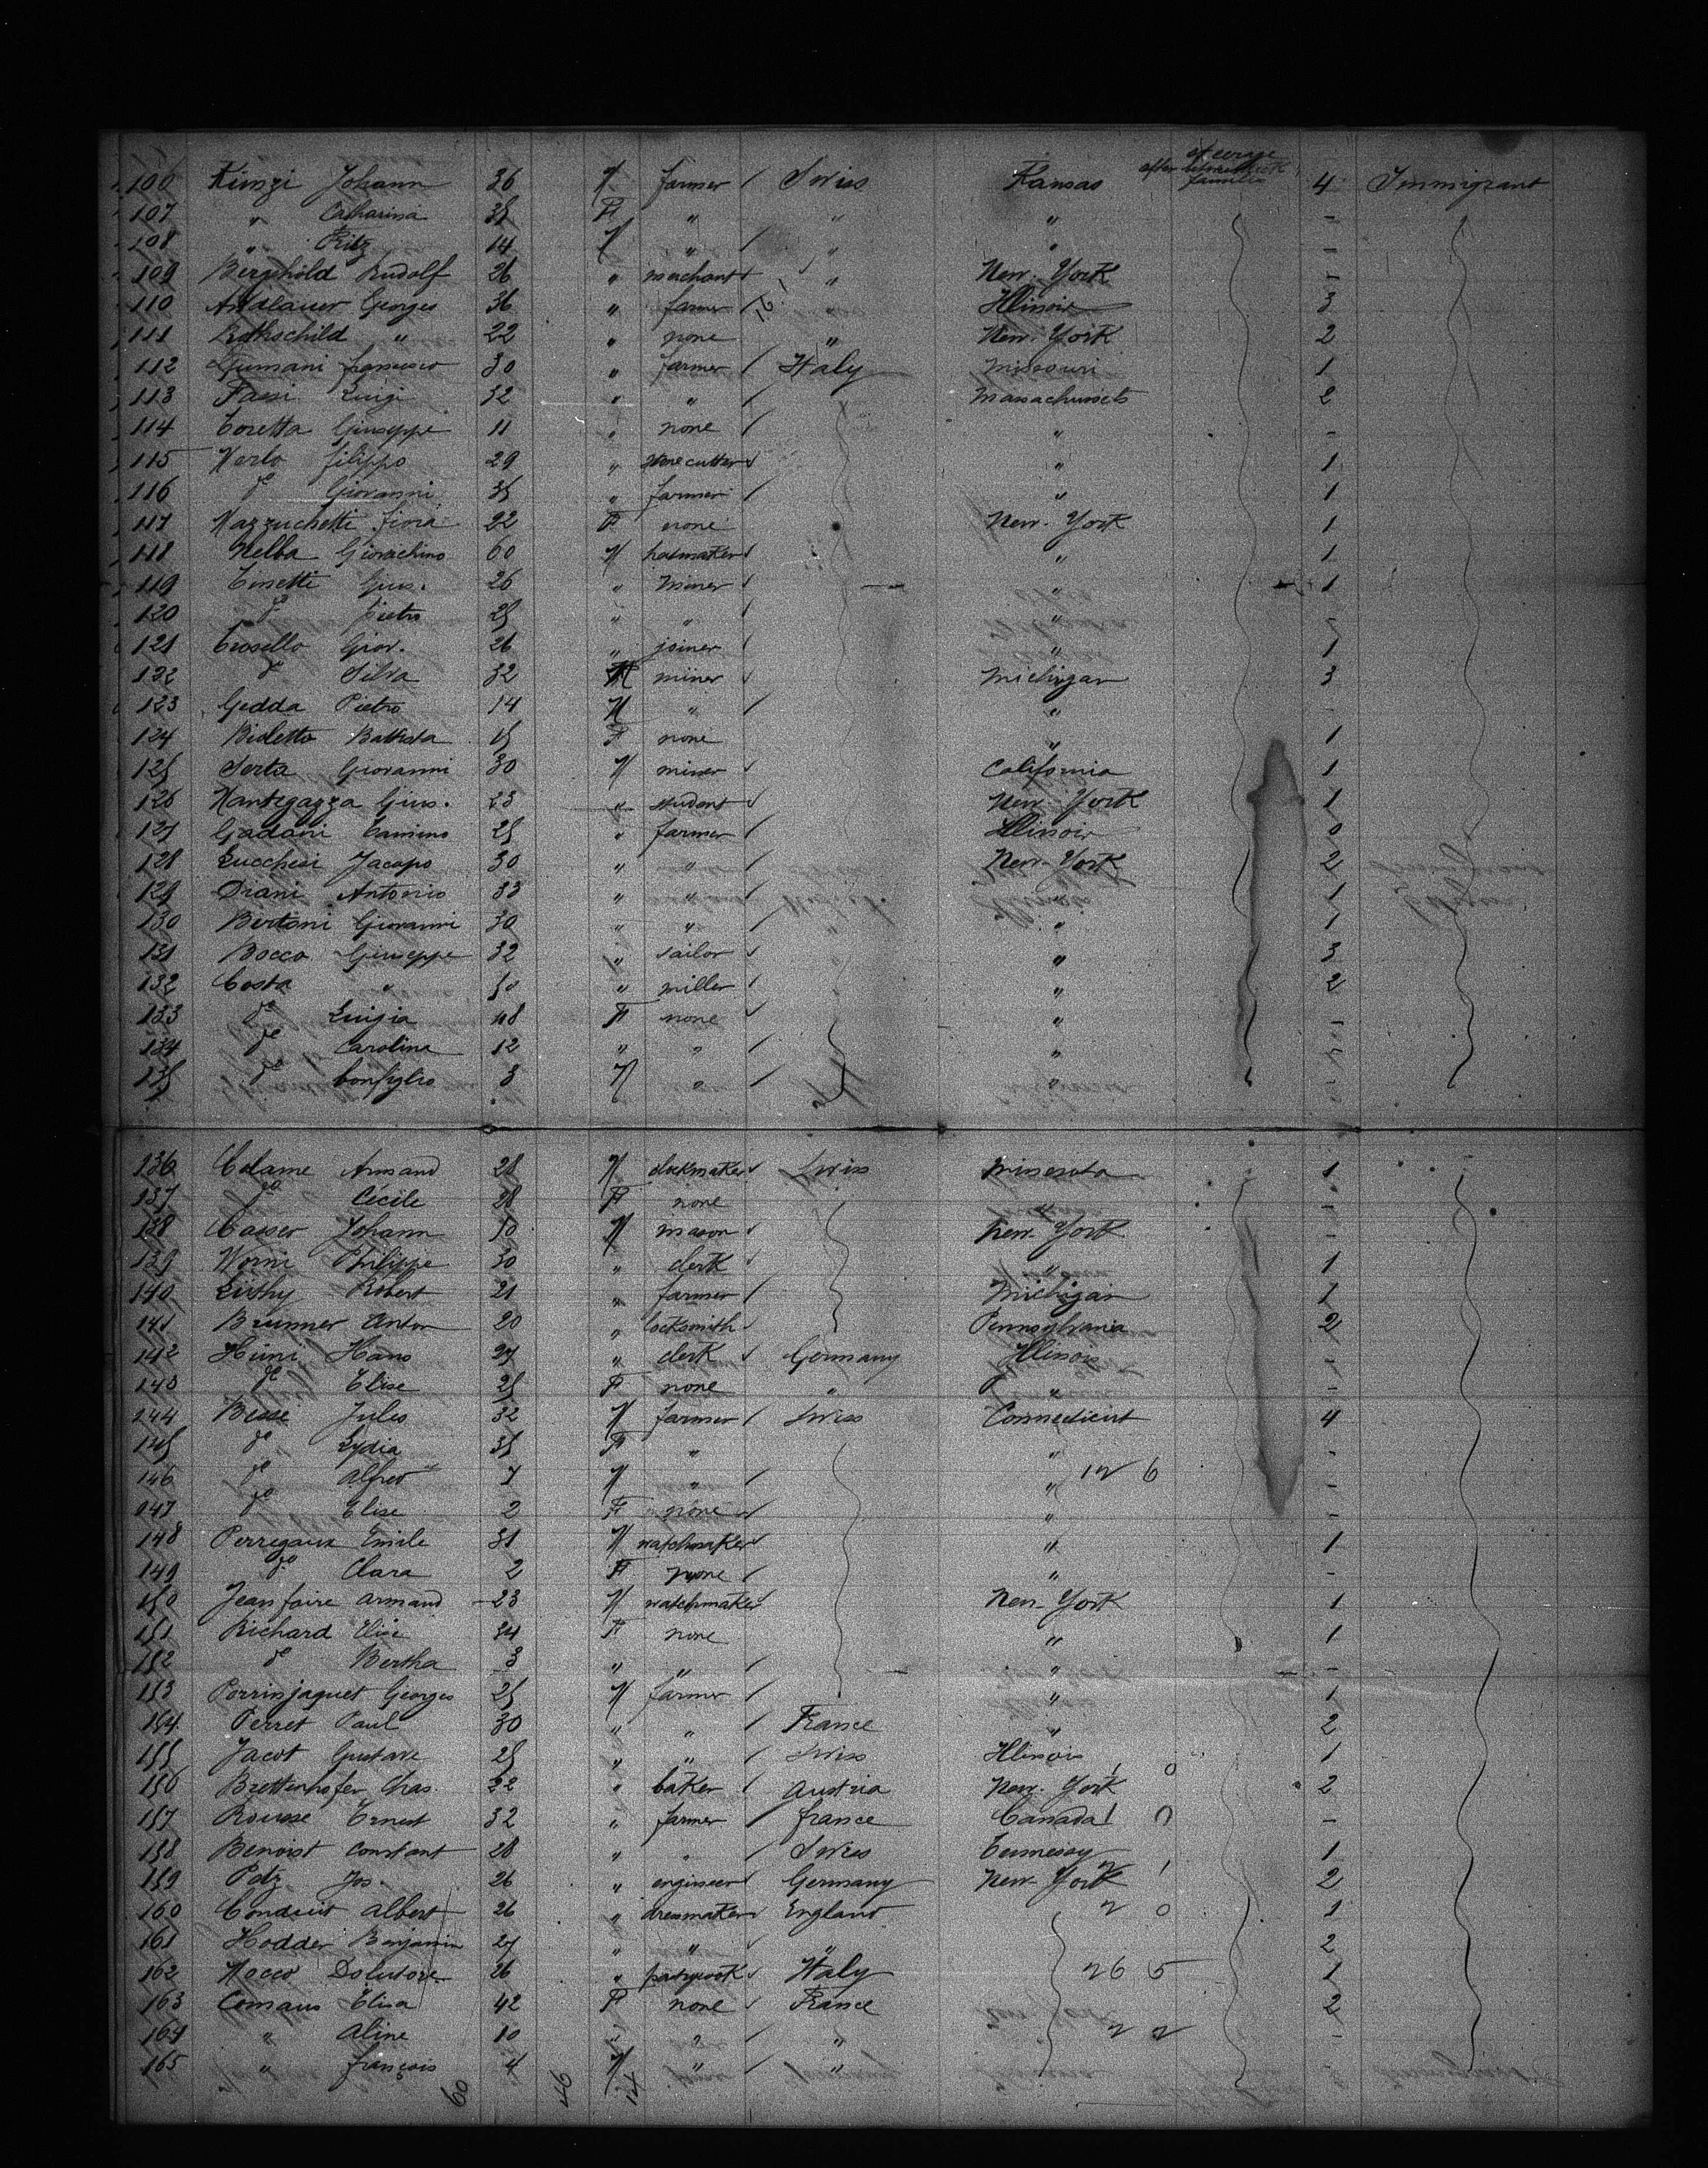 of corse
after betreethek
106 Künzi Johann 36 M farmer / Swiss Kansas familie 4 Immigrant
107 " Catharina 35 F " " " -
108 " Fritz 14 M " / " " -
109 Bergchild Rudolf 26 " merchant " New-York -
110 Georges 36 " farmer Illinois 3
111 Rothschild " 22 " none " New-York 2
112 francesco 30 " farmer / Italy Missouri 1
113 Passi Luigi 32 " " / Massachussets 2
114 Coretta Giuseppe 11 " none / " -
115 Merlo filippo 29 " stonecutter " 1
116 do Giovanni 35 " farmer / " 1
117 Mazzuchetti 22 F none New-York 1
118 Melba Gioachino 60 M hatmaker " 1
119 Gius. 26 " miner " 1
120 do pietro 25 " " / " -
121 Crosello Giov. 26 " joiner / " 1
122 do Silva 32 M miner Michigan 3
123 Gedda Pietro 14 M " / " -
124 Bioletto Battista 15 F none " 1
125 Serta Giovanni 30 M miner California 1
126 Mantegazza Gius. 23 " student New-York 1
127 Gadani Camino 25 " farmer / Illinois 0
128 Lucchesi Jacopo 30 " " / New-York 2
129 Diani Antonio 33 " " / " 1
130 Bertoni Giovanni 30 " " / " 1
131 Bocco Giuseppe 32 " sailor " 3
132 Costa " 50 " miller " 2
133 do Luigia 48 F none " -
134 do Carolina 12 " " / " -
135 do Bonfiglio 3 M " / " -
136 Calame Armand 28 M clockmaker Swiss Minesota 1
137 do Cécile 28 F none -
138 Casser Johann 50 M mason New-York -
139 Worni Philippe 30 " clerk " 1
140 Lüthy Robert 21 " farmer / Michigan 1
141 Brunner Anton 20 " locksmith Pennsylvania 2
142 Hüni Hans 27 " clerk Germany Illinois -
143 do Elise 25 F none " " -
144 Besse Jules 32 M farmer / Swiss Connecticut 4
145 do Lydia 35 F " " -
146 do Alfred 7 M " / " 12 6 -
147 do Elise 2 F none " -
148 Perregaux Emile 31 M watchmaker " 1
149 do Clara 2 F none / " -
150 Jeanfaire Armand 23 M watchmaker New-York 1
151 Richard Elise 34 F none " 1
152 do Bertha 3 " " / " -
153 Perrinjaquet Georges 25 M farmer / " 1
154 Perret Paul 30 " " / France " 2
155 Jacot Gustave 25 " " / Swiss Illinois 1
156 Brettenhofer Chas. 22 " baker / Austria New-York 1 0 2
157 Rousse Ernest 32 " farmer / France Canada 1 0 -
158 Benoist Constant 28 " " / Swiss Tennessy 1
159 Potz Jos. 26 " engineer Germany New-York 2 1 2
160 Conduit Albert 26 " dressmaker England 2 0 1
161 Hodder Benjamin 27 " " " 2
162 Mocco 26 " pastrycook Italy 26 5 1
163 Comaus Elisa 42 F none France 2
164 " Aline 10 " " / " 2 2 -
165 " françois 4 M " / " -
60 46 14